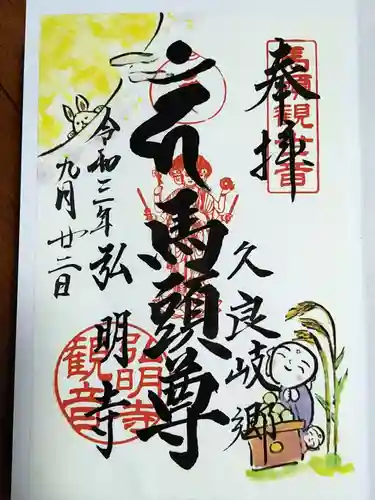 奉拝
馬頭観世音
久良岐郷
馬頭尊
令和三年 弘明寺
九月廿二日
弘明寺
観音